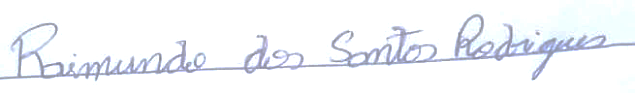 Raimundo dos Santos Rodrigues